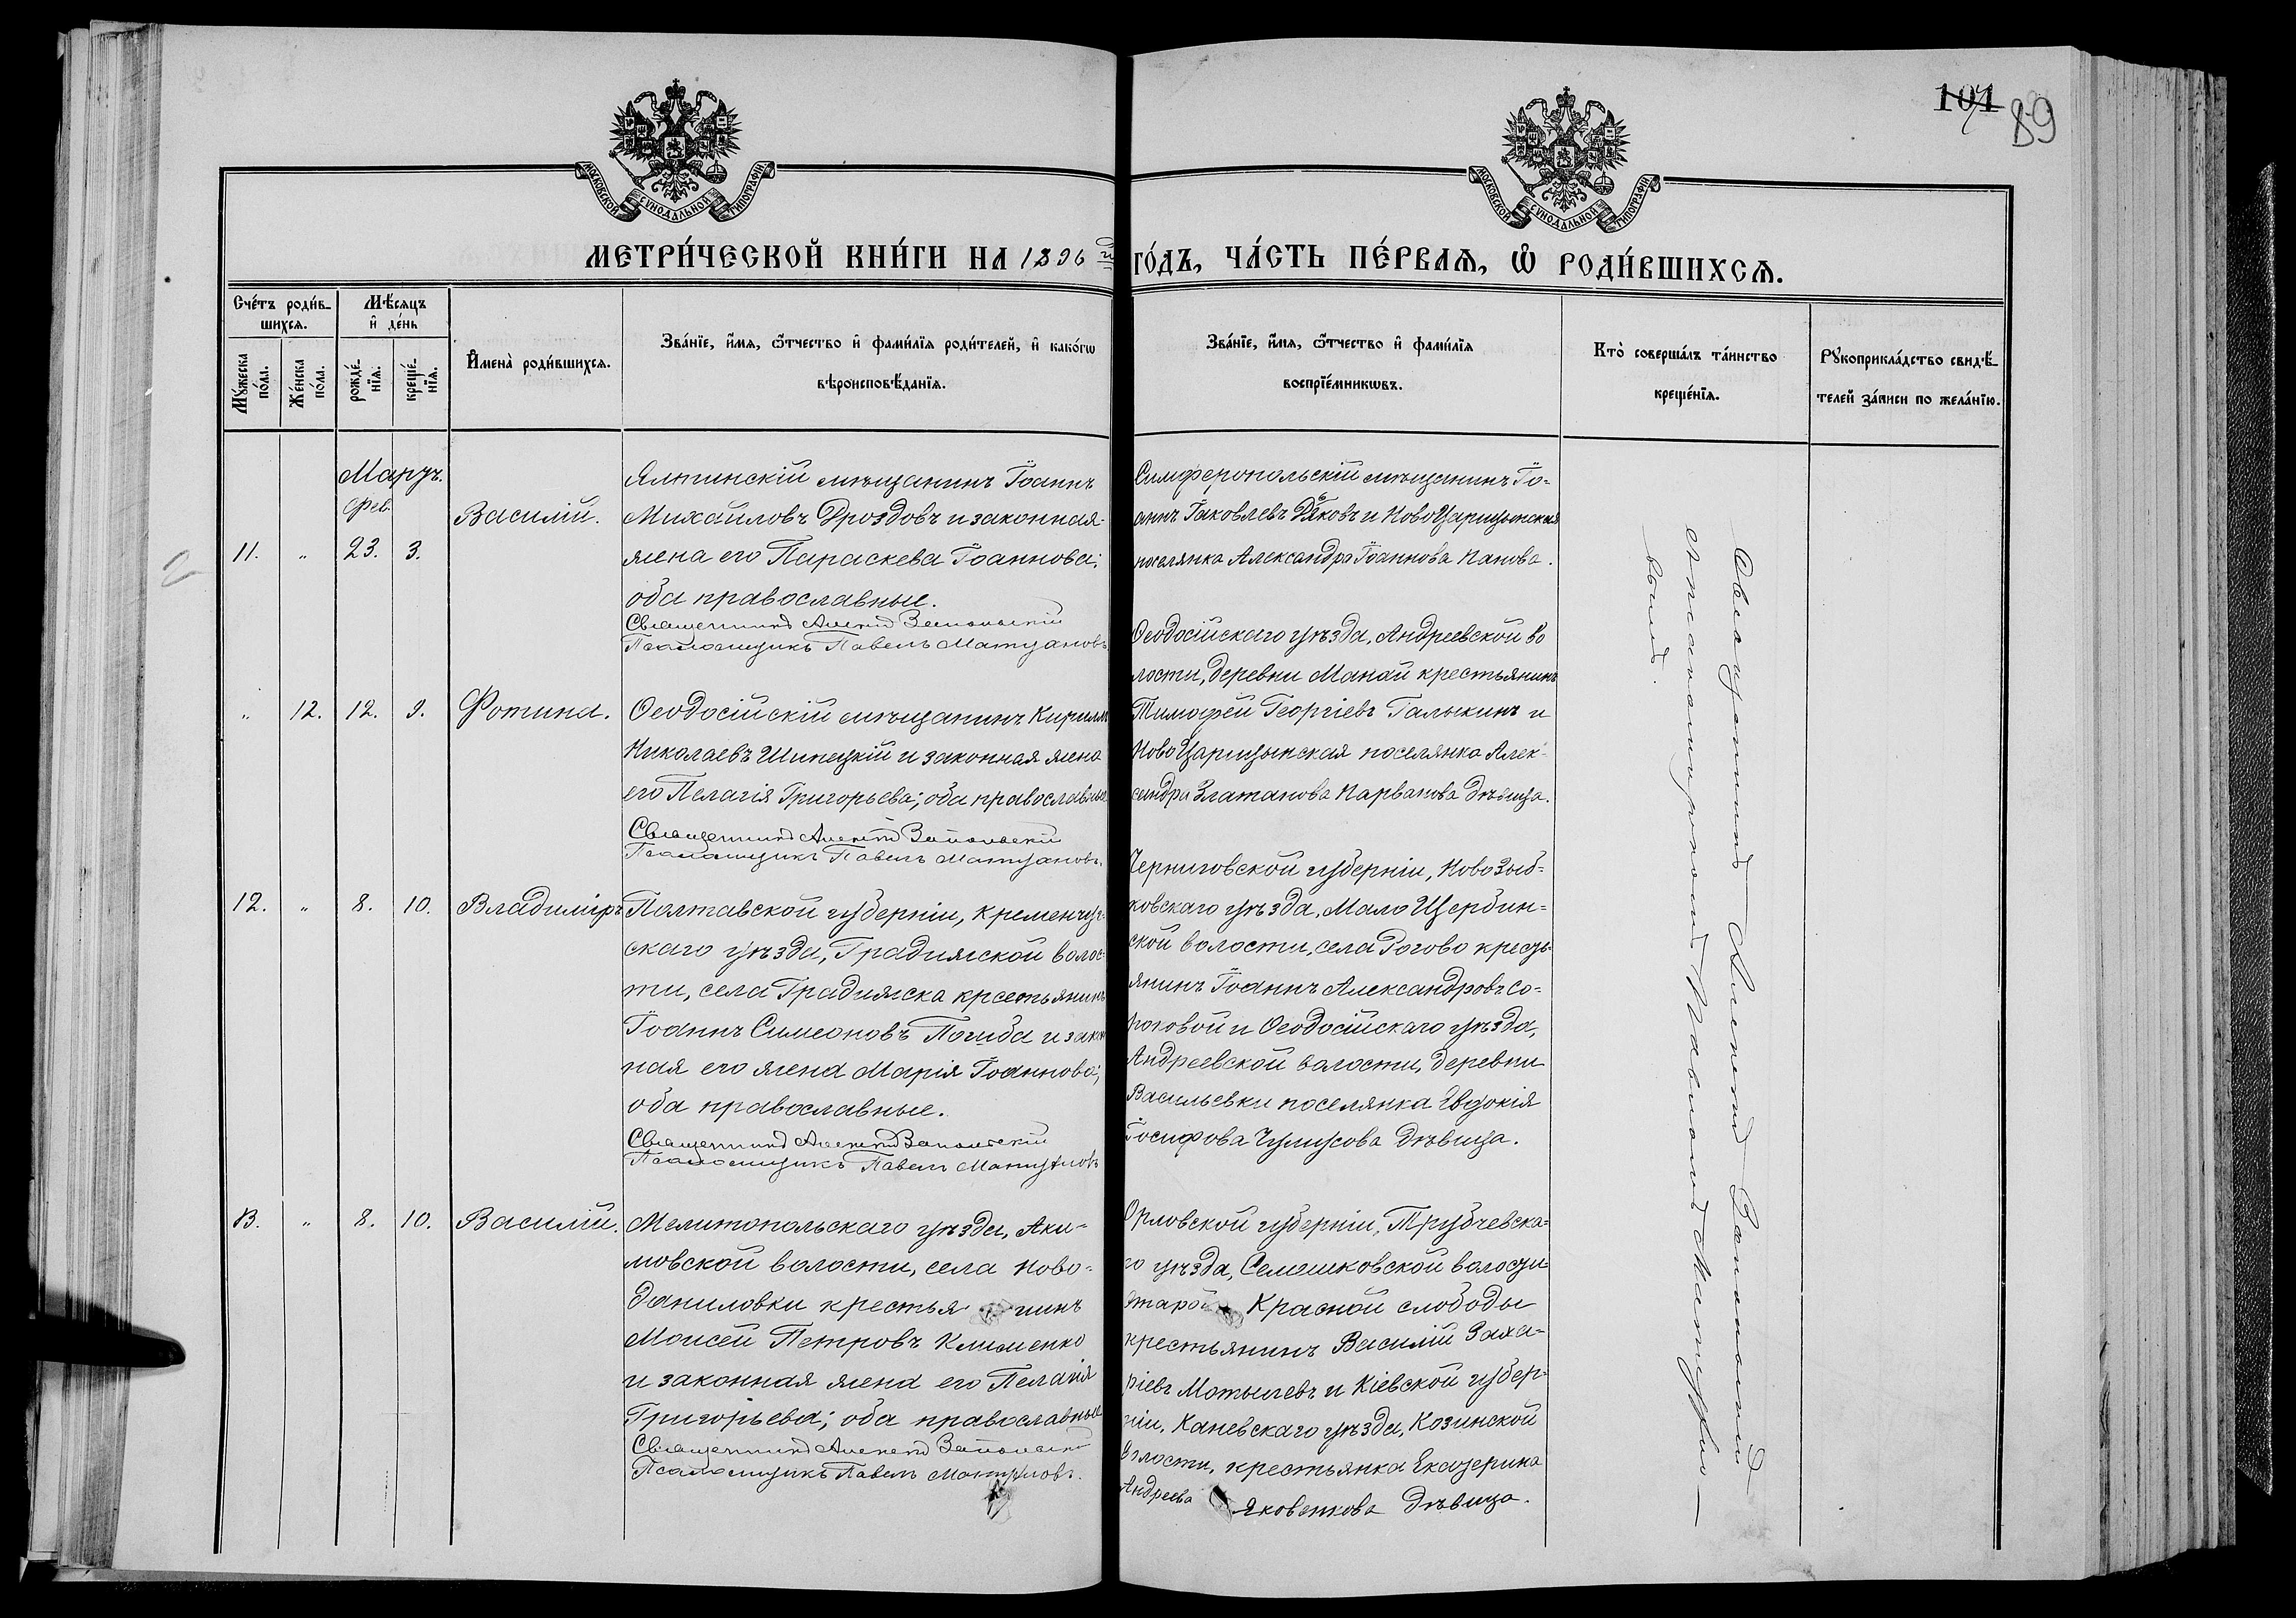 101
89
МОСКОВСКОЙ СУНОДАЛЬНОЙ ТИПОГРАФІИ
МОСКОВСКОЙ СУНОДАЛЬНОЙ ТИПОГРАФІИ
МЕТРИ́ЧЕСКОЙ КНИ́ГИ НА 1896 й ГО́ДЪ, ЧА́СТЬ ПЕ́РВАЯ, Ѡ РОДИ́ВШИХСЯ.
Сче́тъ роди́в-
шихся.
Мꙋ́жеска
по́ла.
Же́нска
по́ла.
Мѣ́сяцъ
и҆ де́нь
рожде́-
нїя.
креще́-
нїя.
И҆мена̀ роди́вшихся.
Зва́нїе, и҆́мя, ѻ҆́тчество и҆ фами́лїя роди́телей, и҆ како́гѡ
вѣроисповѣ́данїя.
Зва́нїе, и҆́мя, ѻ҆́тчество и҆ фами́лїя
воспрїе́мникѡвъ.
Кто̀ соверша́лъ та́инство
креще́нїя.
Рꙋкоприкла́дство свидѣ́-
телей за́писи по жела́нїю.
Мартъ.
Фев.
11. " 23. 3.
Василій.
Ялтинскій мѣщанинъ Іоаннъ
Михайловъ Дроздовъ и законная
жена его Параскева Іоаннова;
оба православные.
Священникъ Алексій Запольскій
Псаломщикъ Павелъ Матушовъ
Симферопольскій мѣщанинъ Іо-
аннъ Іаковлевъ Дьяковъ и НовоЦарицынская
поселянка Александра Іоаннова Панова.
" 12. 12. 9.
Фотина.
Ѳеодосійскій мѣщанинъ Кириллъ
Николаевъ Шипецкій и законная жена
его Пелагія Григорьева; оба православные
Священникъ Алексій Запольскій
Псаломщикъ Павелъ
Ѳеодосійскаго уѣзда, Андреевской во
лости, деревни Манай крестьянинъ
Тимофей Георгіевъ Галыкинъ и
НовоЦарицынская поселянка Алек-
сандра Златанова Карванова дѣвица.
12. " 8. 10.
Владиміръ
Полтавской губерніи, Кременчуг-
скаго уѣзда, Градижской волос-
ти, села Градижска крестьянинъ
Іоаннъ Симеоновъ Погиба и закон
ная его жена Марія Іоаннова;
оба православные.
Священникъ Алексій Запольскій
Псаломщикъ Павелъ
Черниговской губерніи, НовоЗыб-
ковскаго уѣзда, Мало Щербин-
ской волости, села Рогово кресть-
янинъ Іоаннъ Александровъ Со-
роковой и Ѳеодосійскаго уѣзда,
Андреевской волости, деревни
Васильевки поселянка Евдокія
Іосифова Чулусова дѣвица.
13. " 8. 10.
Василій.
Мелитопольскаго уѣзда, Аки-
мовской волости, села Ново-
Даниловки крестьянинъ
Моисей Петровъ Клименко
и законная жена его Пелагія
Григорьева; оба православные
Священникъ Алексій Запольскій
Псаломщикъ Павелъ
Орловской губерніи, Трубчевска-
го уѣзда, Семешковской волости
Старой Красной слободы
крестьянинъ Василій Заха-
ріевъ Мотылевъ и Кіевской губер-
ніи, Каневскаго уѣзда, Козинской
волости, крестьянка Екатерина
Андреева Яковенкова дѣвица.
Священникъ Алексій Запольскій
съ псаломщикомъ Павломъ